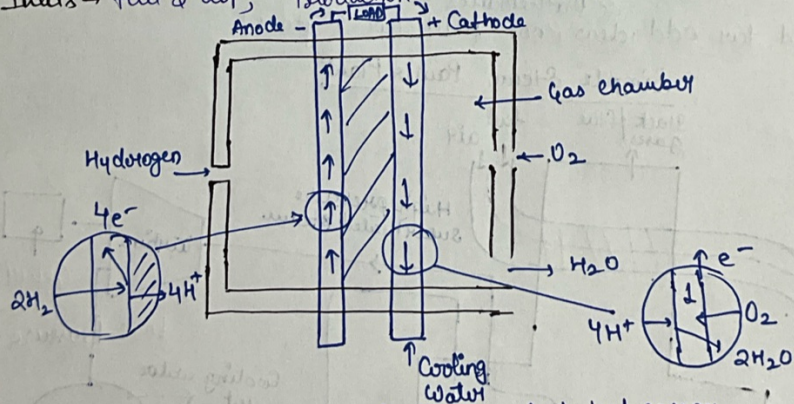 LOAD
Anode - + Cathode
Gas chamber
Hydrogen
O2
4e-
2H2
4H+
H2O
e-
4H+
O2
2H2O
Cooling
Water